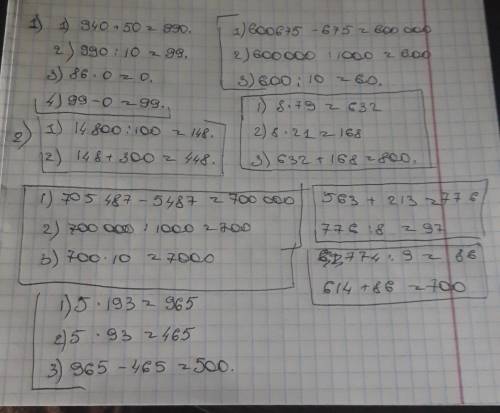 1) 1) 940 + 50 = 990.
2) 990 : 10 = 99.
3) 86 · 0 = 0.
4) 99 - 0 = 99.
1) 600675 - 675 = 600 000
2) 600000 : 1000 = 600
3) 600 : 10 = 60.
2) 1) 14800 : 100 = 148.
2) 148 + 300 = 448.
1) 8 · 79 = 632
2) 8 · 21 = 168
3) 632 + 168 = 800.
1) 705 487 - 5487 = 700 000
2) 700 000 : 1000 = 700
3) 700 · 10 = 7000
563 + 213 = 776
776 : 8 = 97
774 : 9 = 86
614 + 86 = 700
1) 5 · 193 = 965
2) 5 · 93 = 465
3) 965 - 465 = 500.